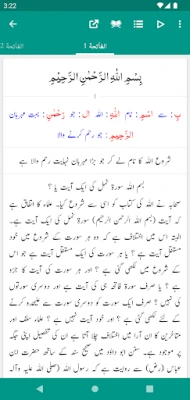 3:22
الفاتحة 1
الفاتحة 2
بِسْمِ اللهِ الرَّحْمٰنِ الرَّحِيْمِ
1
بِ: سے اسْمِ: نام اللهِ: اللہ ال: جو رَحْمٰنِ: بہت مہربان
الرَّحِيْمِ: جو رحم کرنے والا
شروع اللہ کا نام لے کر جو بڑا مہربان نہایت رحم والا ہے
بسم اللہ سورۃ نمل کی ایک آیت یا؟
صحابہ نے اللہ کی کتاب کو اسی سے شروع کیا۔ علماء کا اتفاق ہے
کہ آیت (بسم اللہ الرحمن الرحیم) سورۃ نمل کی ایک آیت ہے۔
البتہ اس میں اختلاف ہے کہ وہ ہر سورت کے شروع میں خود
مستقل آیت ہے یا ہر سورت کی ایک مستقل آیت ہے جو اس
کے شروع میں لکھی گئی ہے؟ اور ہر سورت کی آیت کا جزو
ہے؟ یا صرف سورۃ فاتحہ ہی کی آیت ہے اور دوسری سورتوں
کی نہیں؟ صرف ایک سورت کو دوسری سورت سے علیحدہ کرنے
کے لئے لکھی گئی ہے؟ اور خود آیت نہیں ہے؟ علماء سلف اور
متاخرین کا ان آرا میں اختلاف چلا آتا ہے ان کی تفصیل اپنی جگہ
پر موجود ہے۔ سنن ابو داؤد میں صحیح سند کے ساتھ حضرت ابن
عباس (رض) سے روایت ہے کہ رسول اللہ (صلی اللہ علیہ وآلہ